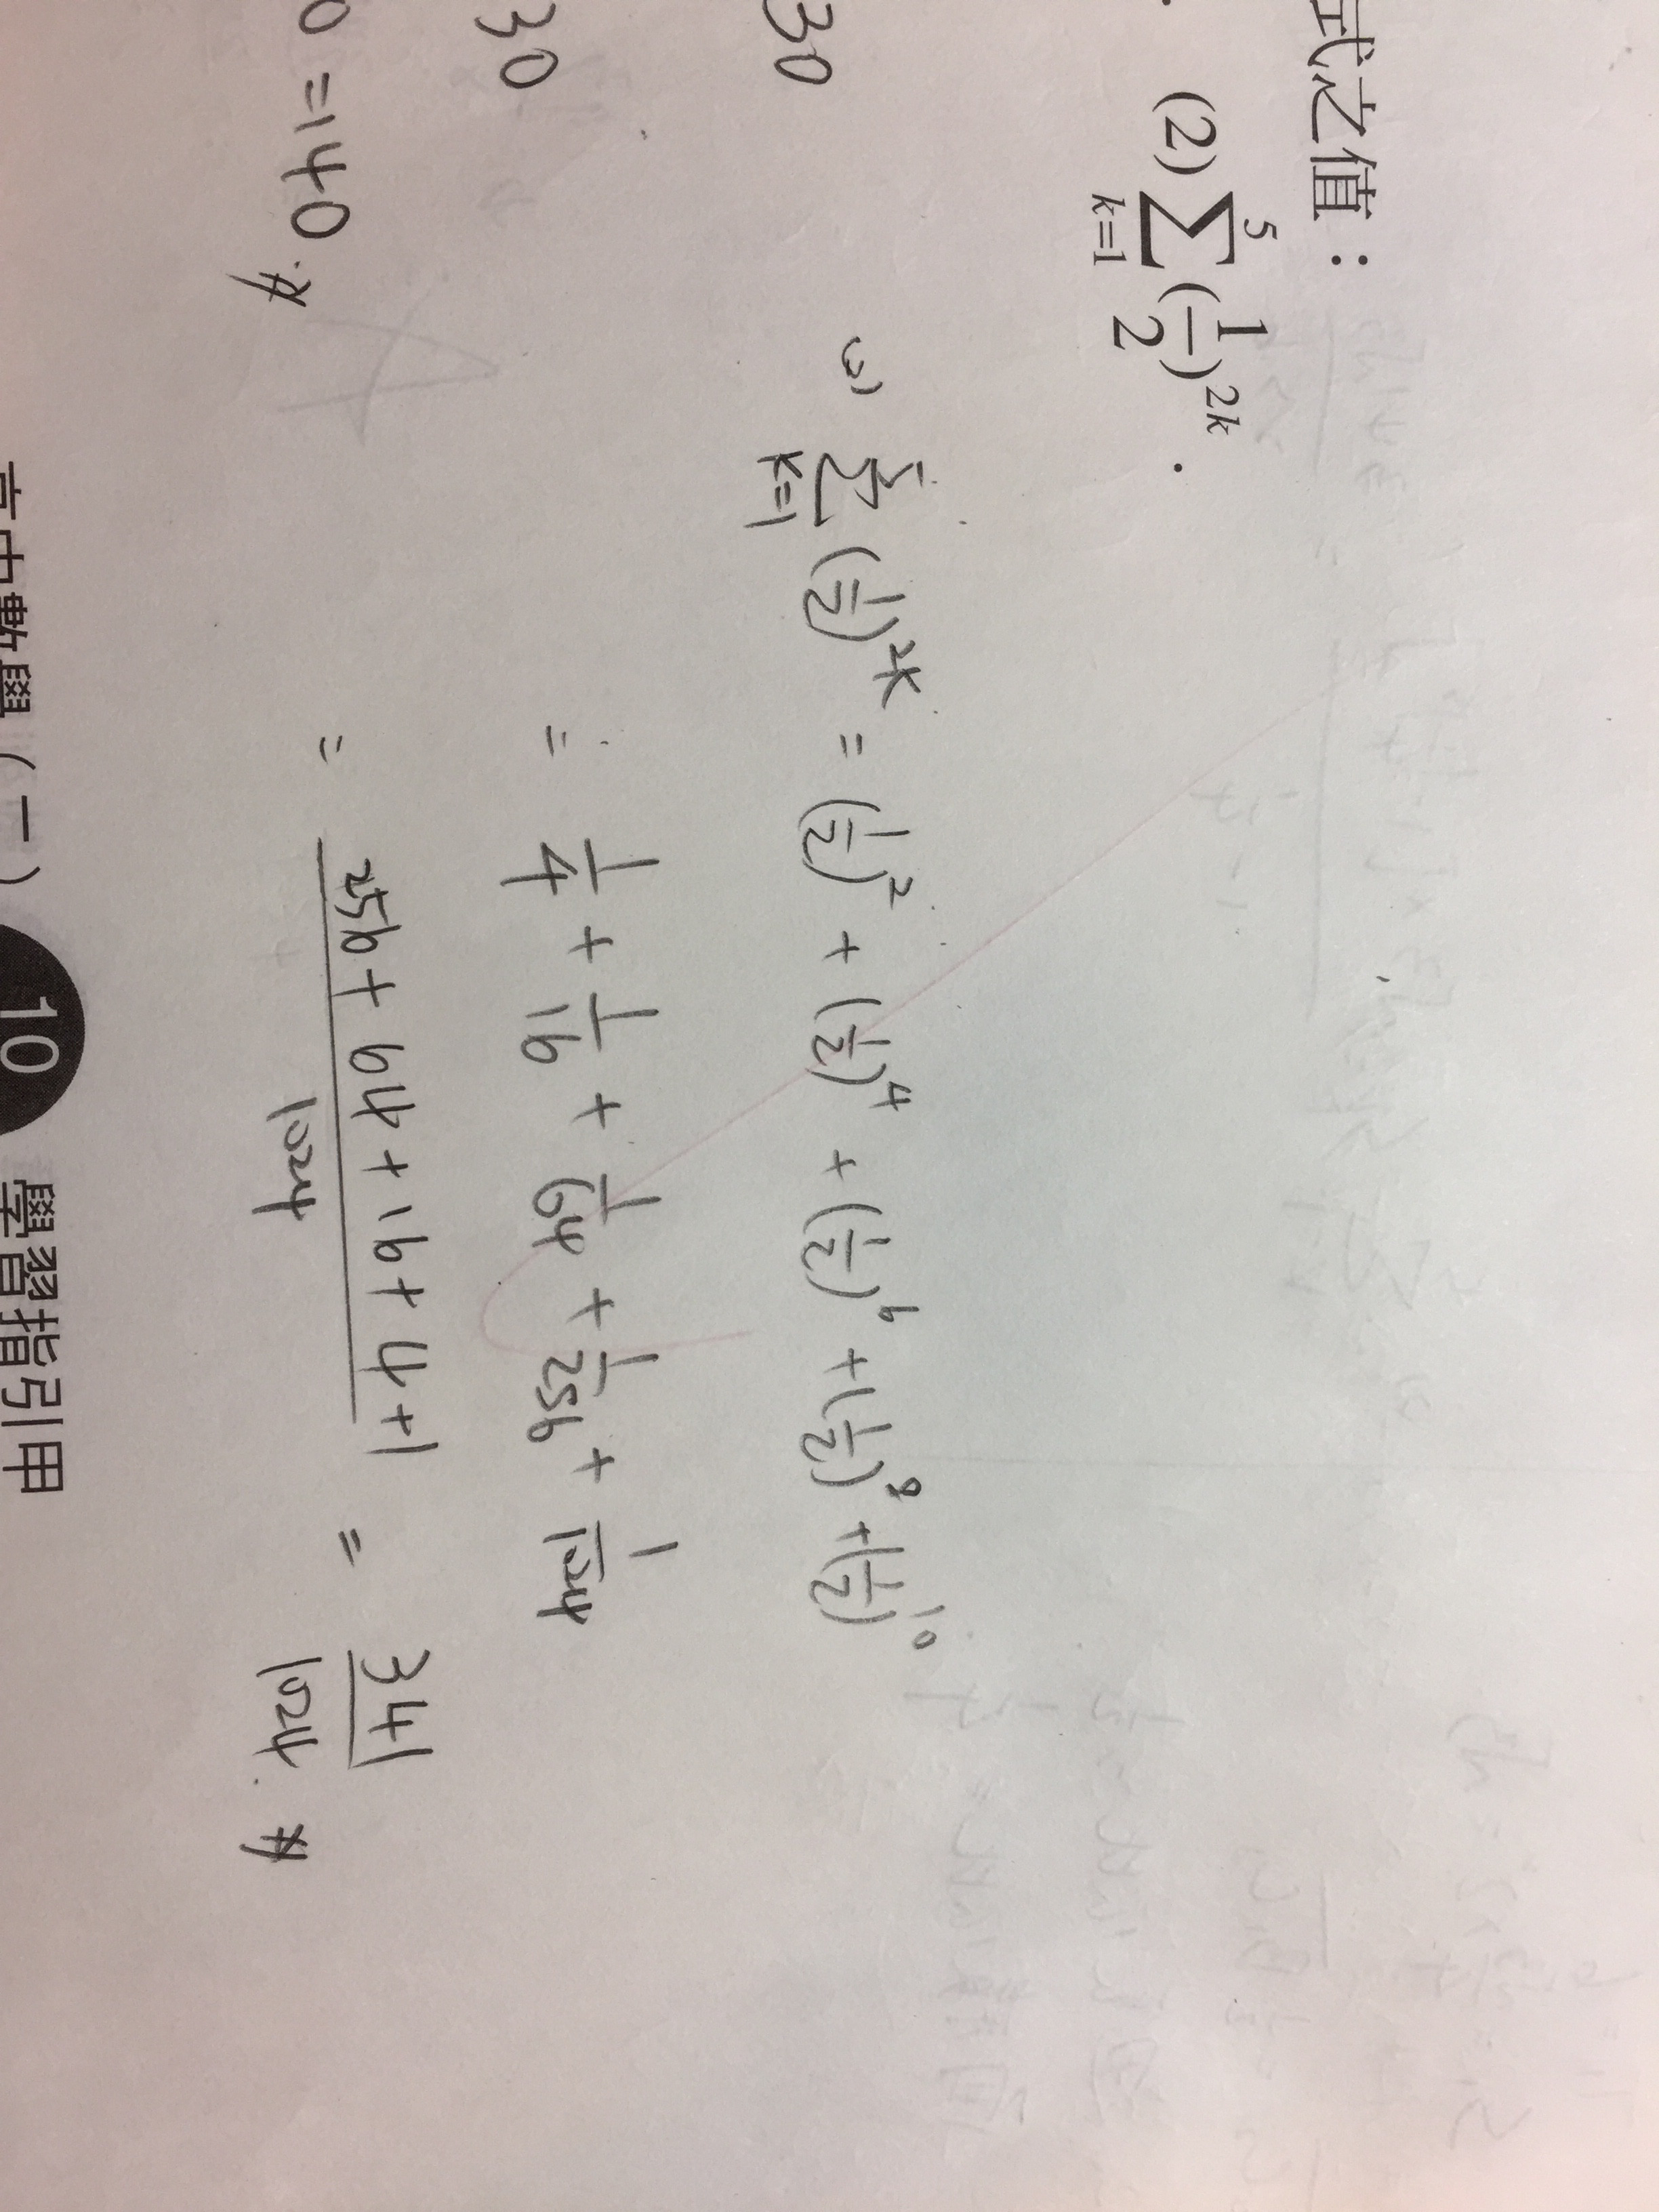 式之值：
. (2) \sum_{k=1}^{5} (\frac{1}{2})^{2k} .
30
(2) \sum_{k=1}^{5} (\frac{1}{2})^{2k} = (\frac{1}{2})^2 + (\frac{1}{2})^4 + (\frac{1}{2})^6 + (\frac{1}{2})^8 + (\frac{1}{2})^{10}
30
= \frac{1}{4} + \frac{1}{16} + \frac{1}{64} + \frac{1}{256} + \frac{1}{1024}
0 = 140 . #
= \frac{256 + 64 + 16 + 4 + 1}{1024} = \frac{341}{1024} . #
高中數學（一） 10 學習指引甲